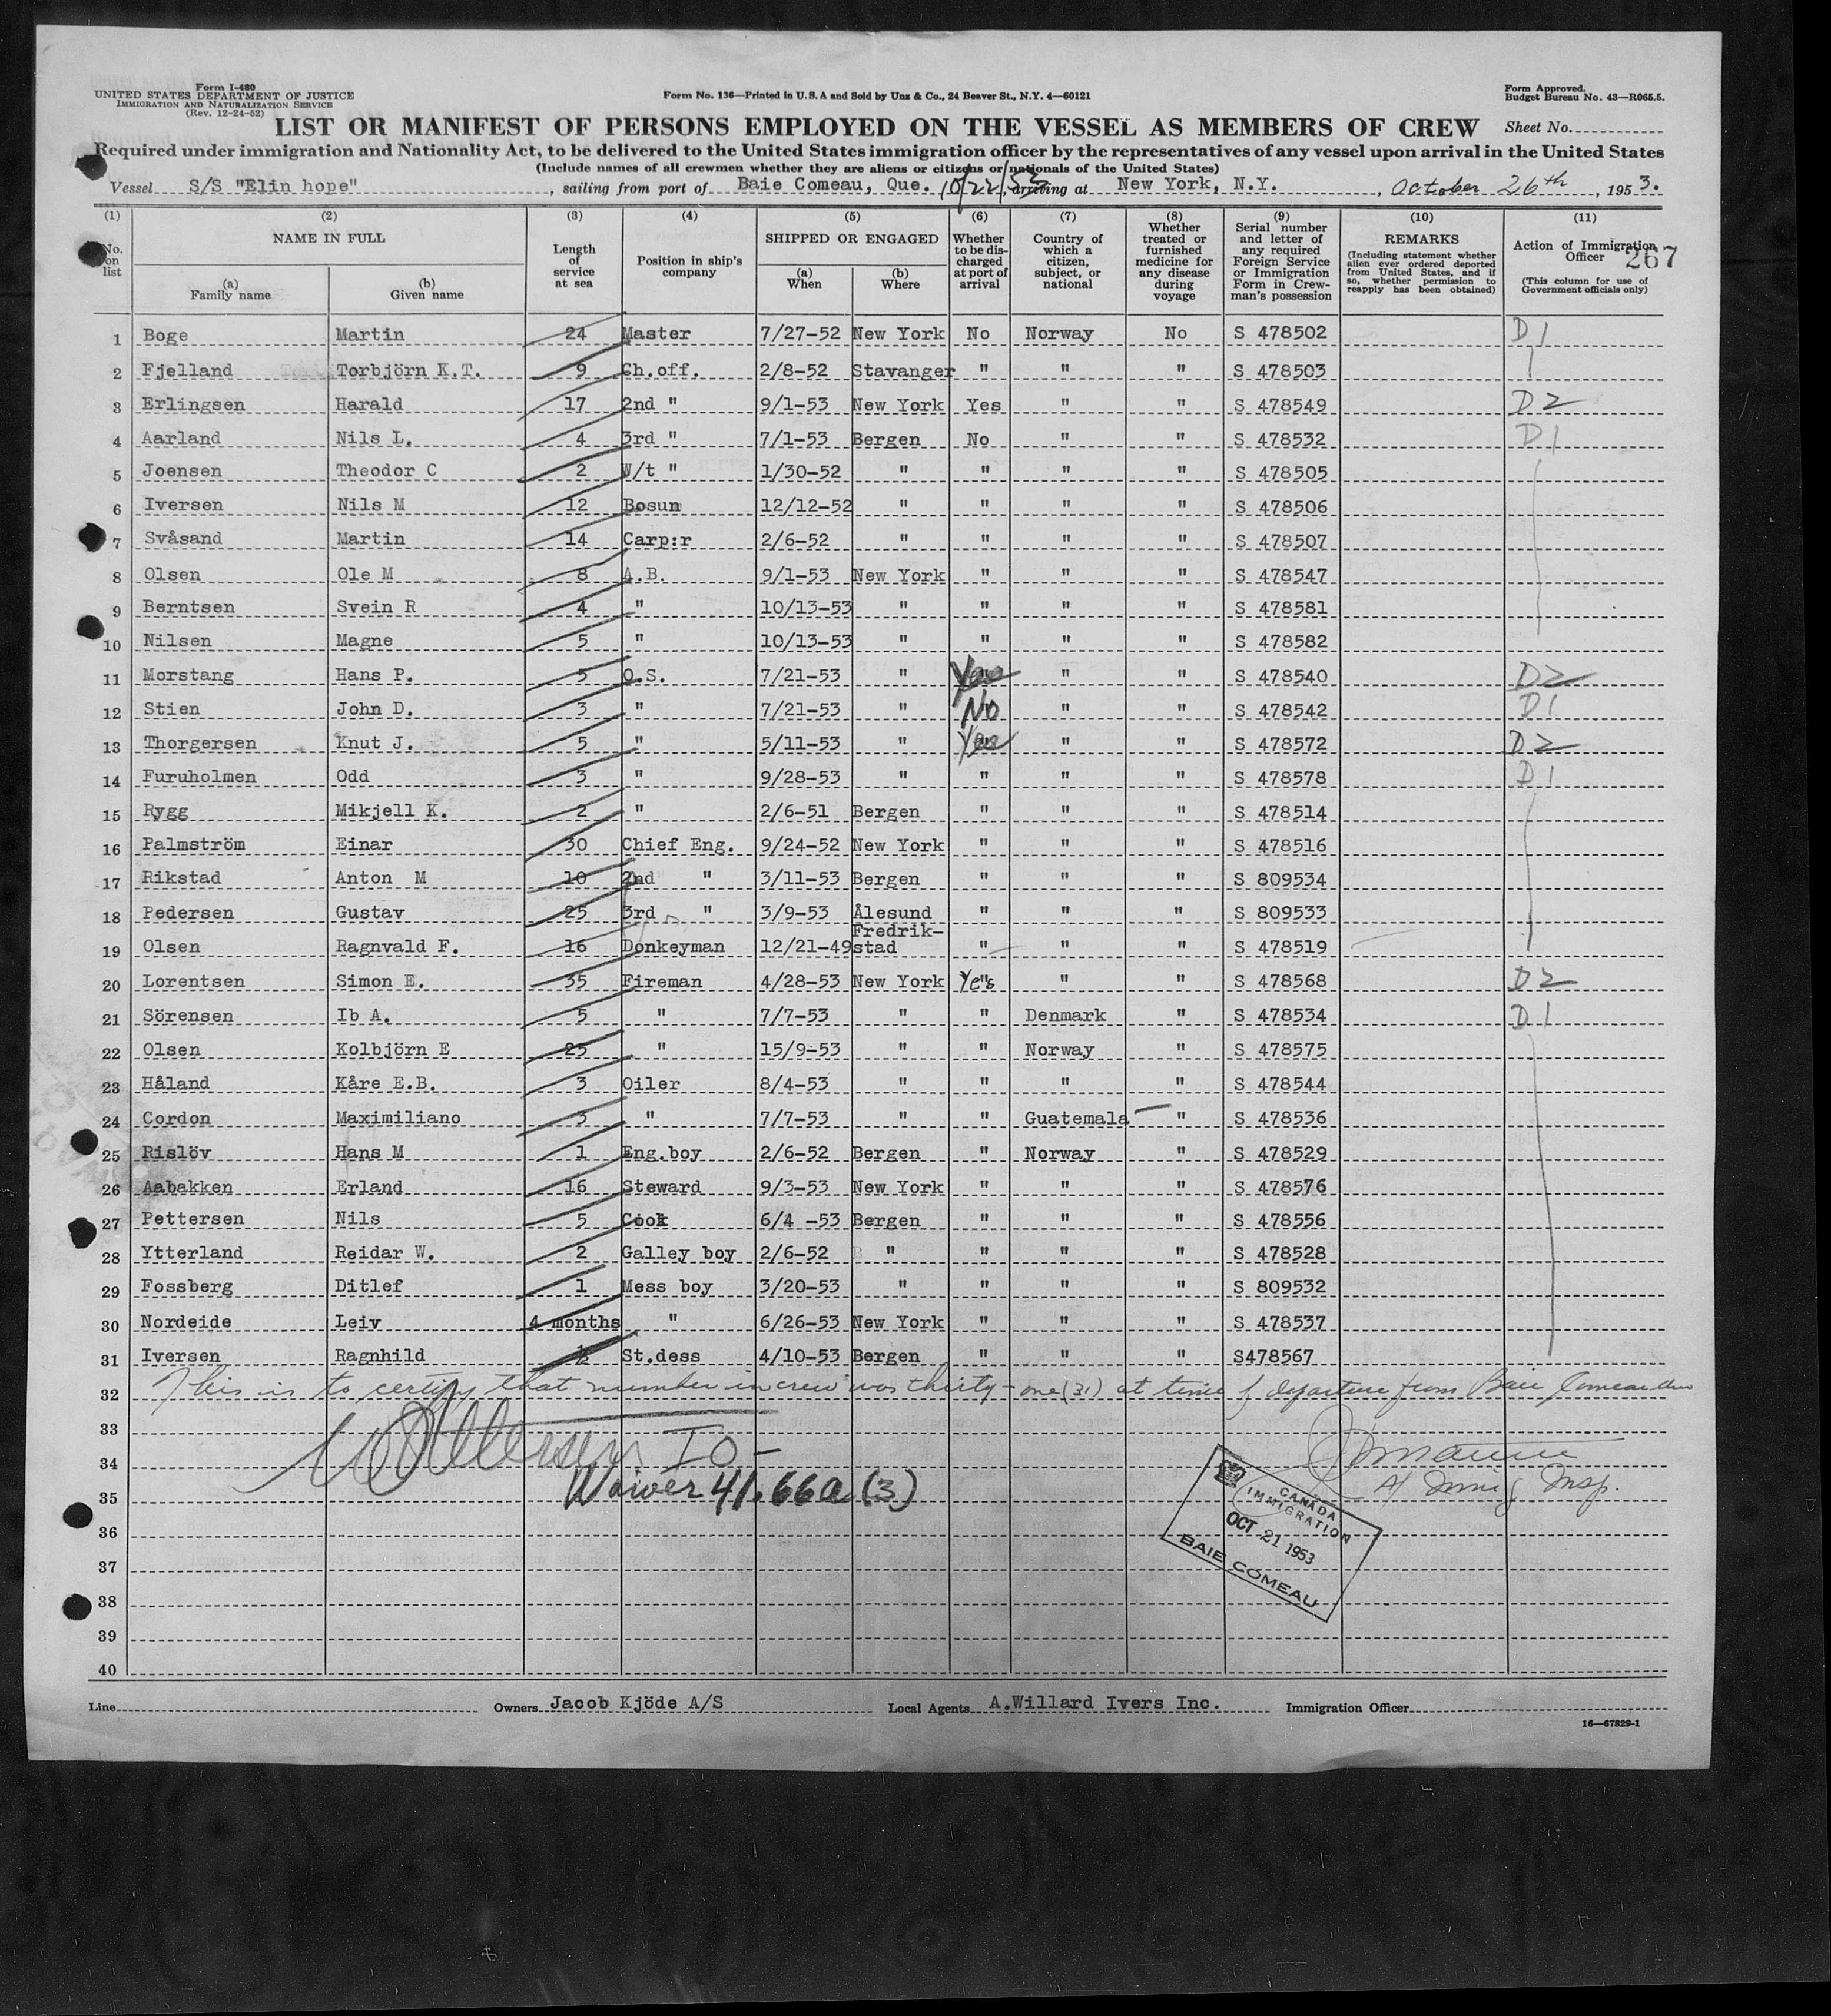 Form I-480
UNITED STATES DEPARTMENT OF JUSTICE
IMMIGRATION AND NATURALIZATION SERVICE
(Rev. 12-24-52)
Form No. 136—Printed in U.S.A and Sold by Unz & Co., 24 Beaver St., N.Y. 4—60121
Form Approved.
Budget Bureau No. 43—R065.5.
LIST OR MANIFEST OF PERSONS EMPLOYED ON THE VESSEL AS MEMBERS OF CREW Sheet No.
Required under immigration and Nationality Act, to be delivered to the United States immigration officer by the representatives of any vessel upon arrival in the United States
(Include names of all crewmen whether they are aliens or citizens or nationals of the United States)
Vessel S/S "Elin hope", sailing from port of Baie Comeau, Que. 10/22/53, arriving at New York, N.Y., October 26th, 1953.
(1) (2) (3) (4) (5) (6) (7) (8) (9) (10) (11)
No. on list
NAME IN FULL
(a) Family name
(b) Given name
Length of service at sea
Position in ship's company
SHIPPED OR ENGAGED
(a) When
(b) Where
Whether to be discharged at port of arrival
Country of which a citizen, subject, or national
Whether treated or furnished medicine for any disease during voyage
Serial number and letter of any required Foreign Service or Immigration Form in Crewman's possession
REMARKS
(Including statement whether alien ever ordered deported from United States, and if so, whether permission to reapply has been obtained)
Action of Immigration Officer
267
(This column for use of Government officials only)
1 Boge Martin 24 Master 7/27-52 New York No Norway No S 478502 D1
2 Fjelland Torbjörn K.T. 9 Ch.off. 2/8-52 Stavanger " " " S 478503
3 Erlingsen Harald 17 2nd " 9/1-53 New York Yes " " S 478549 D2
4 Aarland Nils L. 4 3rd " 7/1-53 Bergen No " " S 478532 D1
5 Joensen Theodor C 2 W/t " 1/30-52 " " " " S 478505
6 Iversen Nils M 12 Bosun 12/12-52 " " " " S 478506
7 Svåsand Martin 14 Carp:r 2/6-52 " " " " S 478507
8 Olsen Ole M 8 A.B. 9/1-53 New York " " " S 478547
9 Berntsen Svein R 4 " 10/13-53 " " " " S 478581
10 Nilsen Magne 5 " 10/13-53 " " " " S 478582
11 Morstang Hans P. 5 O.S. 7/21-53 " Yes " " S 478540 D2
12 Stien John D. 3 " 7/21-53 " No " " S 478542 D1
13 Thorgersen Knut J. 5 " 5/11-53 " Yes " " S 478572 D2
14 Furuholmen Odd 3 " 9/28-53 " " " " S 478578 D1
15 Rygg Mikjell K. 2 " 2/6-51 Bergen " " " S 478514
16 Palmström Einar 30 Chief Eng. 9/24-52 New York " " " S 478516
17 Rikstad Anton M 10 2nd " 3/11-53 Bergen " " " S 809534
18 Pedersen Gustav 25 3rd " 3/9-53 Ålesund " " " S 809533
19 Olsen Ragnvald F. 16 Donkeyman 12/21-49 Fredrikstad " " " S 478519
20 Lorentsen Simon E. 35 Fireman 4/28-53 New York Yes " " S 478568 D2
21 Sörensen Ib A. 5 " 7/7-53 " " Denmark " S 478534 D1
22 Olsen Kolbjörn E 25 " 15/9-53 " " Norway " S 478575
23 Håland Kåre E.B. 3 Oiler 8/4-53 " " " " S 478544
24 Cordon Maximiliano 3 " 7/7-53 " " Guatemala " S 478536
25 Rislöv Hans M 1 Eng.boy 2/6-52 Bergen " Norway " S 478529
26 Aabakken Erland 16 Steward 9/3-53 New York " " " S 478576
27 Pettersen Nils 5 Cook 6/4 -53 Bergen " " " S 478556
28 Ytterland Reidar W. 2 Galley boy 2/6-52 " " " " S 478528
29 Fossberg Ditlef 1 Mess boy 3/20-53 " " " " S 809532
30 Nordeide Leiv 4 months " 6/26-53 New York " " " S 478537
31 Iversen Ragnhild ½ St.dess 4/10-53 Bergen " " " S478567
32 This is to certify that number in crew was thirty-one (31) at time of departure from Baie Comeau
33
34 IO-
35 Waiver 41.66a(3) A/ Immig Insp.
36
37
38
39
40
CANADA
IMMIGRATION
OCT 21 1953
BAIE COMEAU
Line Owners Jacob Kjöde A/S Local Agents A.Willard Ivers Inc. Immigration Officer
16—67829-1